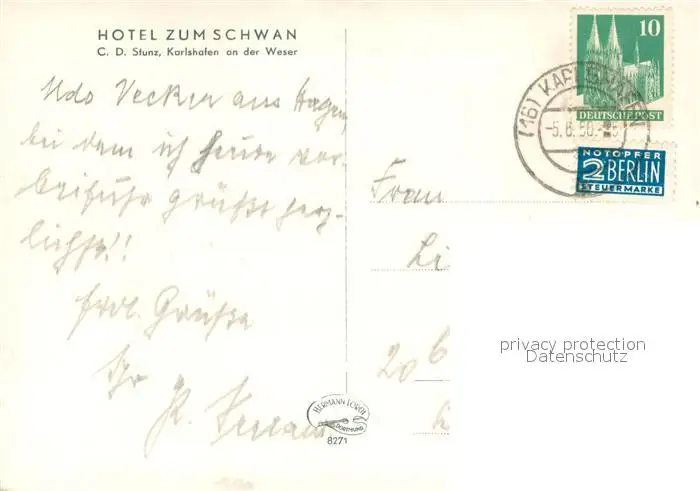 HOTEL ZUM SCHWAN
C. D. Stunz, Karlshafen an der Weser
Udo Vecker aus Hagen,
bei dem ich heute vor-
beifuhr grüßt herz-
lichst!!
frdl. Grüße
Ihr
K.
10
DEUTSCHE POST
(16) KARLSHAFEN
-5.6.50.-
NOTOPFER
2 BERLIN
STEUERMARKE
Frau
Li
20 6
privacy protection
Datenschutz
HERMANN LORCH
DORTMUND
8271